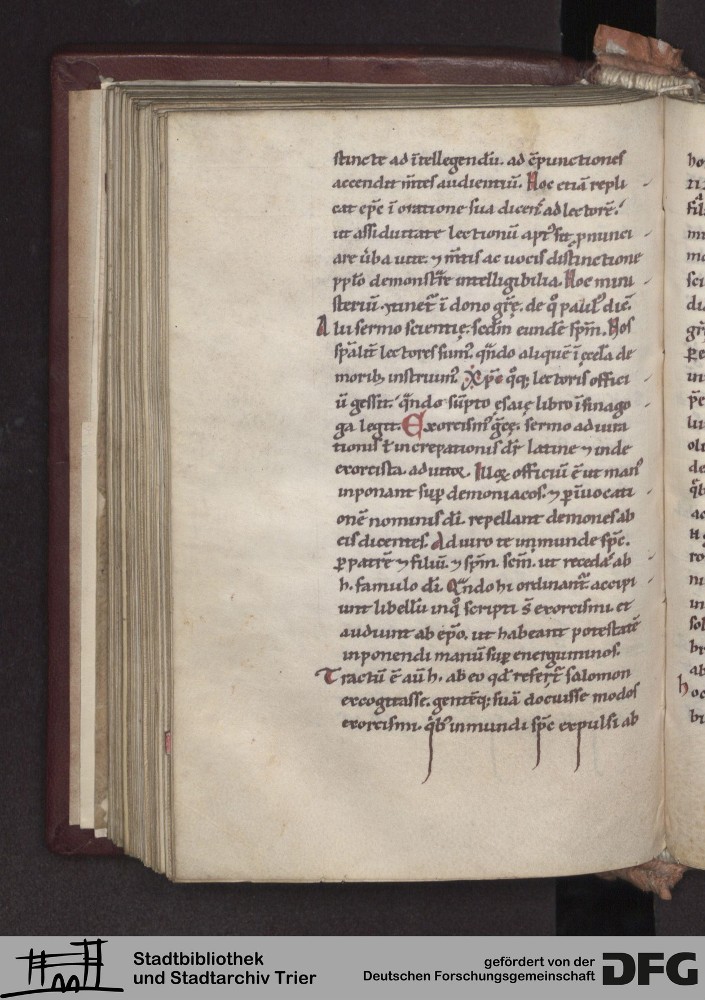 stincte ad ītellegendū. ad cōpunctiones
accendit mētes audientiū. Hoc etiā repli
cat epc̄ ī oratione sua dicens ad lectorē.
ut assiduitate lectionū apt' sit ꝓnunci
are ūba uite. ⁊ mētis ac uocis distinctione
ppłō demonstrare intelligibilia. Hoc mini
steriū ꝑtinet ī dono grę. de q̊ paul' dic̄.
Alii sermo scientię. scdm eundē spm̄. Hos
spāliť lectores sum'. qn̄do aliquē ī ęccła de
morib; instruim'. Xp̄c q̊q; lectoris offici
ū gessit. qn̄do sūpto esaię libro ī sinago
ga legit. Exorcism' gr̄ce. sermo adiura
tionis ł increpationis dr̄ latine ⁊ inde
exorcista. adiutor. Illoꝝ officiū ē ut man'
inponant sup demoniacos. ⁊ ꝑ īuocati
onē nominis dī. repellant demones ab
eis dicentes. Adiuro te inmunde spc̄.
ꝑ patrē ⁊ filiū. ⁊ spm̄. scm̄. ut recedas ab
h. famulo dī. Qn̄do hi ordinant accipi
unt libellū in q̊ scripti s̄ exorcismi. et
audiunt ab epo. ut habeant potestatē
inponendi manū sup energuminos.
Tractū ē au h. ab eo qđ refert salomon
excogitasse. gentēq; suā docuisse modos
exorcismi. qib' inmundi spc̄ expulsi ab
Stadtbibliothek
und Stadtarchiv Trier
gefördert von der
Deutschen Forschungsgemeinschaft
DFG